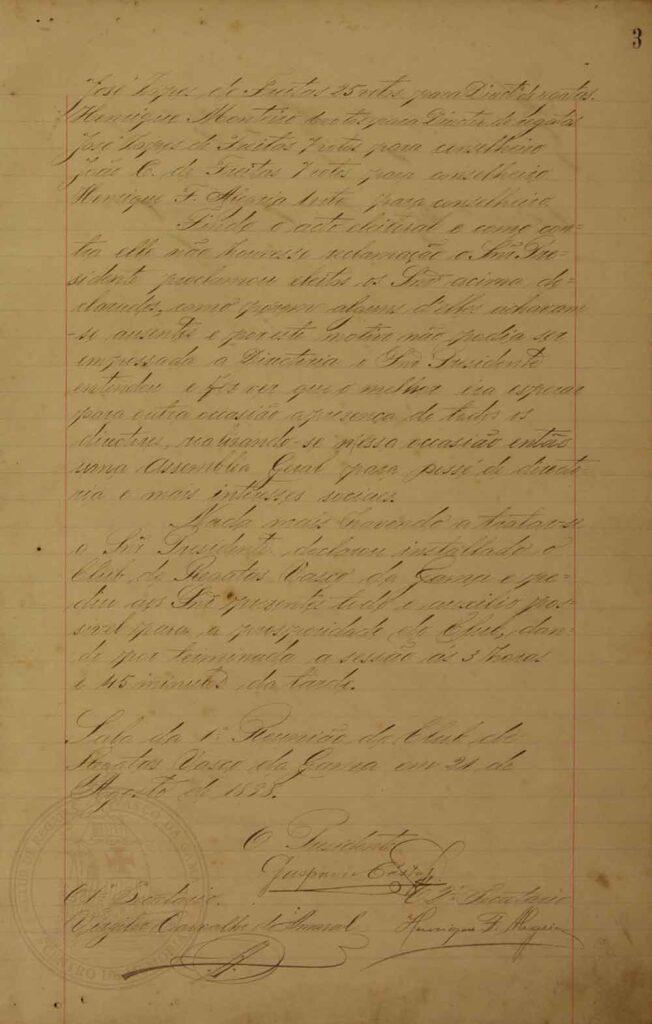 3
José Lopes de Freitas 25 votos para Direct. de regatas.
Henrique Monteiro votos para Director de regatas
José Lopes de Freitas 7 votos para conselheiro
João C. de Freitas 7 votos para conselheiro
Henrique F. Alegria 1 voto para conselheiro
Findo o acto eleitoral e como con-
tra elle não houvesse reclamação o Snr. Pre-
sidente proclamou eleitos os Snrs. acima de-
clarados, como porem alguns d'elles achavam
-se ausentes e por este motivo não podia ser
empossada a Directoria o Snr. Presidente
entendeu e fez ver que o melhor era esperar
para outra occasião a presença de todos os
directores, realizando-se n'essa occasião então
uma Assemblia Geral para posse de directo-
ria e mais interesses sociaes.
Nada mais havendo a tratar-se
o Snr. Presidente declarou installado o
Club de Regatas Vasco da Gama e pe-
diu aos Snrs. presentes todo o auxilio pos-
sivel para a prosperidade do Club, dan-
do por terminada a sessão ás 3 horas
e 45 minutos da tarde.
Sala da 1ª Reunião do Club de
Regatas Vasco da Gama em 21 de
Agosto de 1898.
O Presidente
Gaspar de Castro
O 1º Secretario
O 2º Secretario
Virgilio Carvalho do Amaral
Henrique F. Alegria